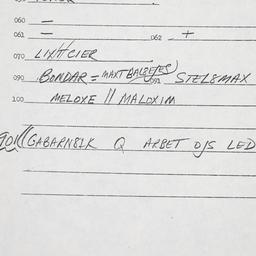 060 —
061 — 062 - +
070 LIXHCIER
090 BONDAR = MAXTBALSETES) 091 STEL&MAX
100 MELOXE // MALOXIM
101 // GABARNSIK Q ARBET OJS LED